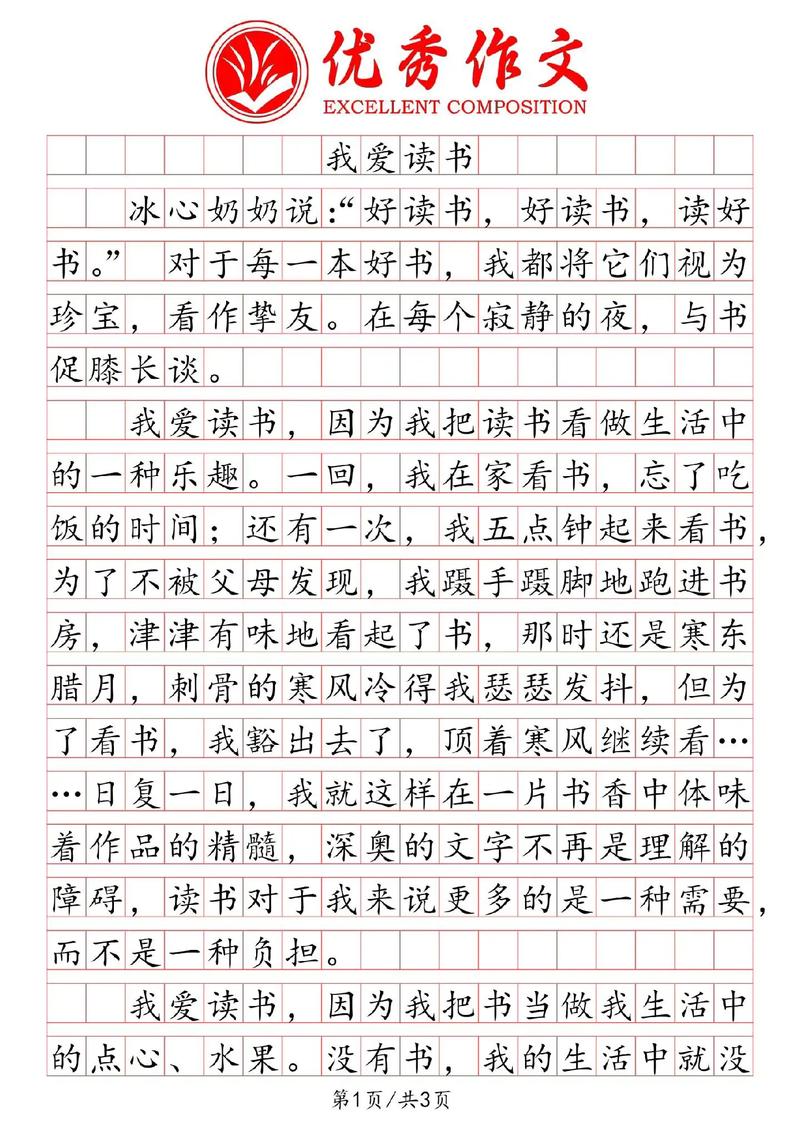 优秀作文
EXCELLENT COMPOSITION
我爱读书
冰心奶奶说:“好读书，好读书，读好
书。” 对于每一本好书，我都将它们视为
珍宝，看作挚友。在每个寂静的夜，与书
促膝长谈。
我爱读书，因为我把读书看做生活中
的一种乐趣。一回，我在家看书，忘了吃
饭的时间；还有一次，我五点钟起来看书，
为了不被父母发现，我蹑手蹑脚地跑进书
房，津津有味地看起了书，那时还是寒东
腊月，刺骨的寒风冷得我瑟瑟发抖，但为
了看书，我豁出去了，顶着寒风继续看…
…日复一日，我就这样在一片书香中体味
着作品的精髓，深奥的文字不再是理解的
障碍，读书对于我来说更多的是一种需要，
而不是一种负担。
我爱读书，因为我把书当做我生活中
的点心、水果。没有书，我的生活中就没
第1页/共3页